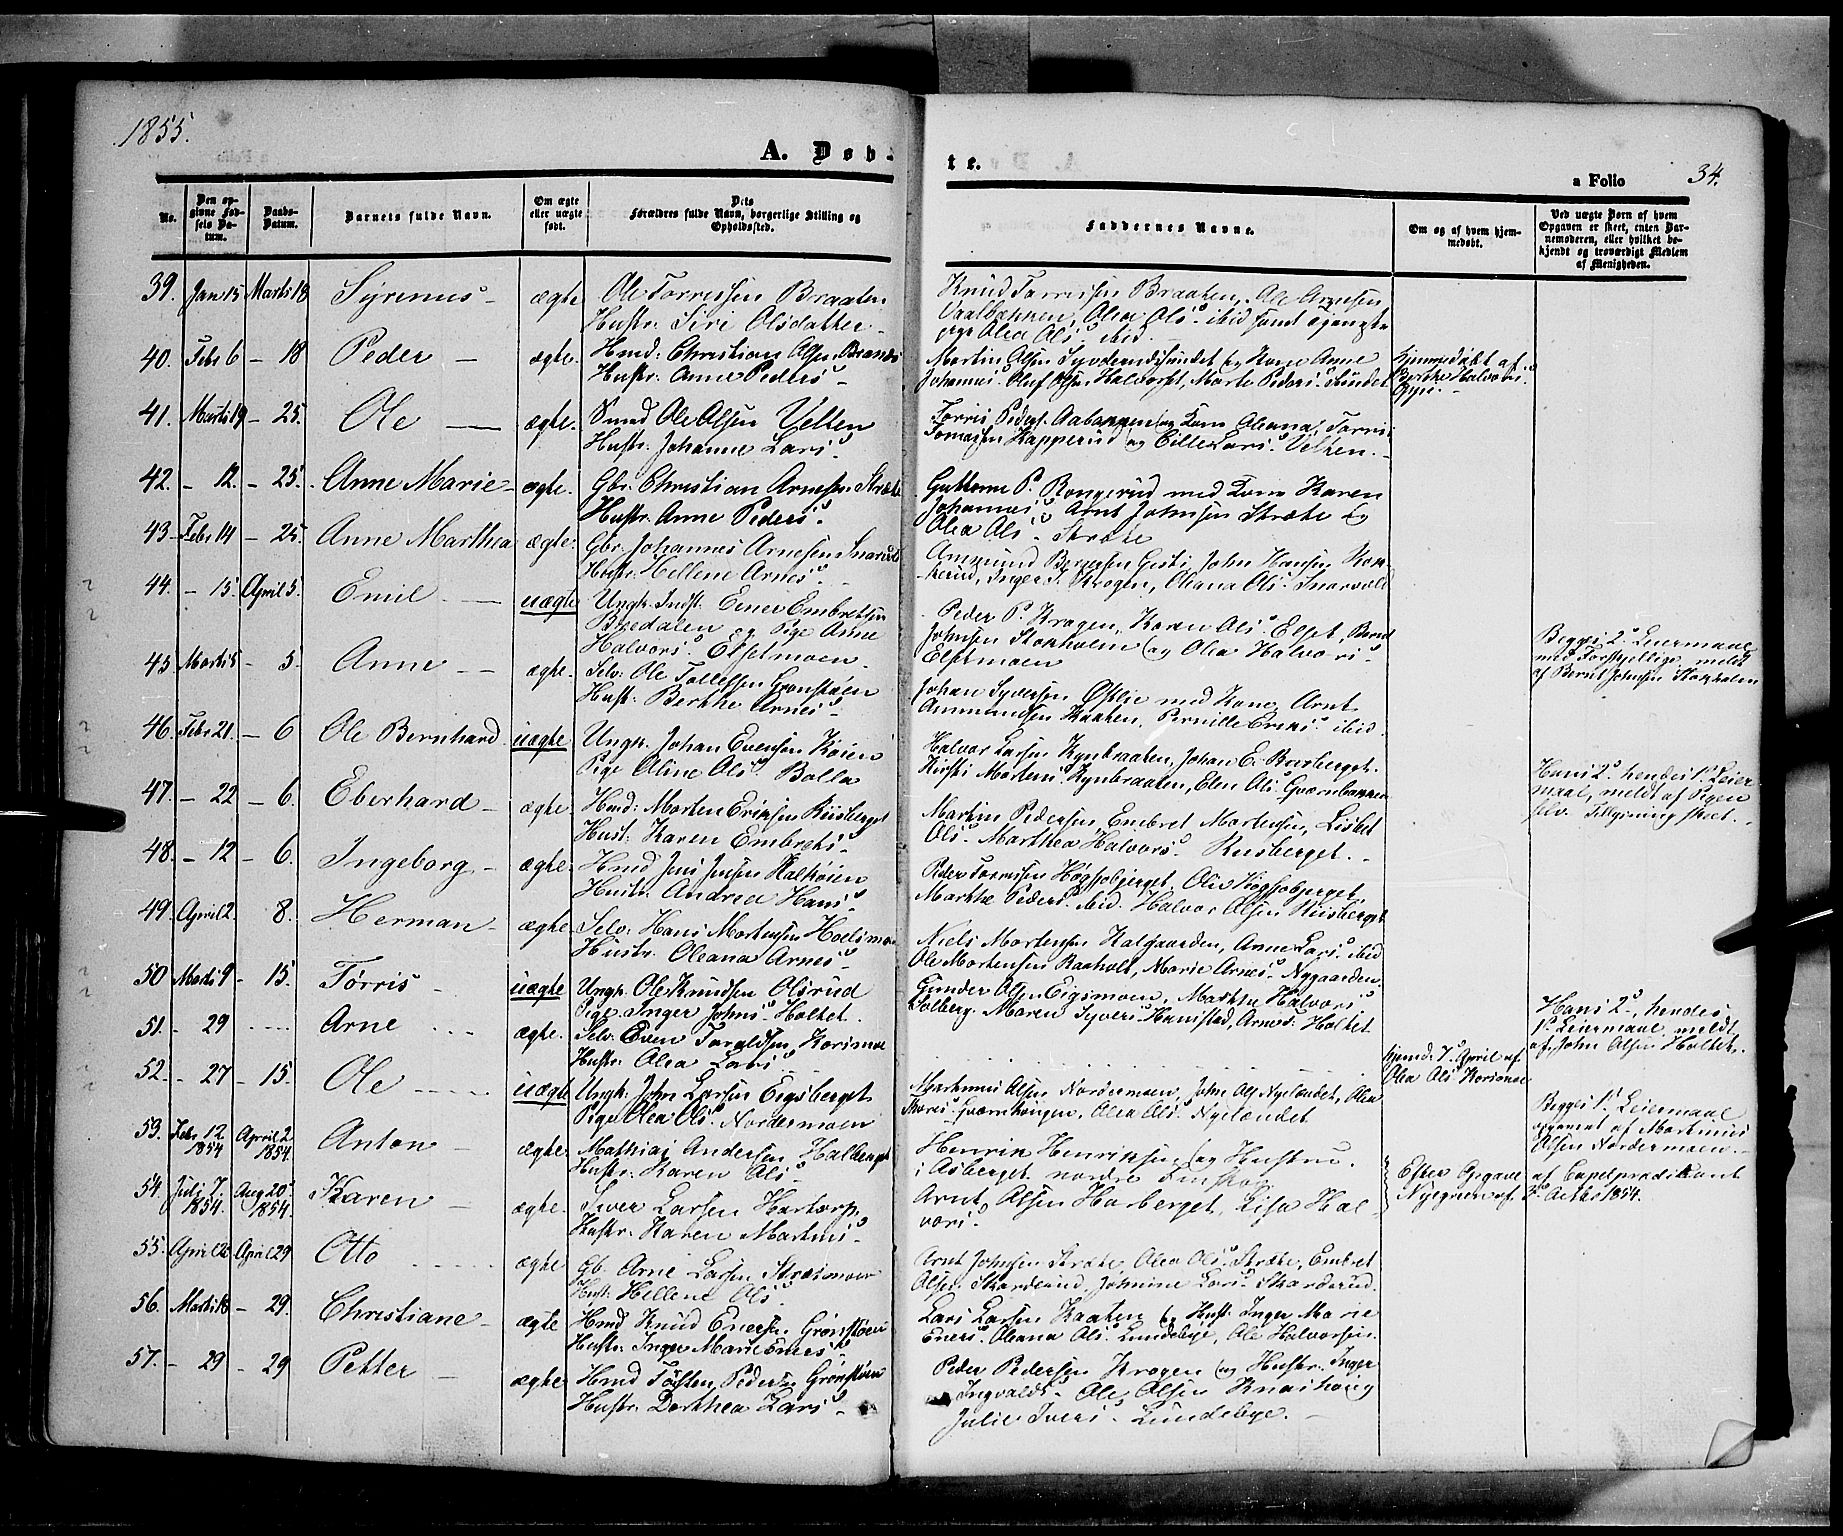 1855.
A. Døb-
te.
a Folio 34.
No.
Den opgivne Fødsels Datum.
Daabs-Datum.
Barnets fulde Navn.
Om ægte eller uægte født.
Dets Forældres fulde Navn, borgerlige Stilling og Opholdssted.
Faddernes Navne.
Om og af hvem hjemmedøbt.
Ved uægte Børn af hvem Opgaven er skeet, enten Barnemoderen, eller hvilket bekjendt og troværdigt Medlem af Menigheden.
39. Jan 15 Marts 18 Syrenus - ægte Ole Torressen Braaten
Hustr: Siri Olsdatter -
Knud Torressen Braaten, Ole Arnesen
Olea Ols: ibid samt
pige Olea Ols: ibid.
40. Febr 6 - 18 Peder - ægte. Hmd: Christian Olsen
Hustr: Anne Peders -
Martin Olsen og Kone Anne
Johannes: Oluf Olsen Halvorset, Marte Peders: Sundet
hjemmedøbt af
Berthe Halvors:
41. Marts 19 - 25. Ole - ægte. Smed Ole Olsen Velten
Hustr: Johanne Lars:
Torris Peders: Aabakken og Kone Oleana, Torris
Tomasen Kapperud og Cille Lars: Velten. -
42. - 12. - 25. Anne Marie - ægte. Gbr: Christian Arnesen Stræte
Hustr: Anne Peders:
Guttorm P. Rongerud med Kone Karen
Johannes: Arnt Johnsen Stræte og
Olea Ols: Stræte
43. Febr 14 - 25. Anne Marthea ægte. Gbr: Johannes Arnesen
Hustr: Hellene Arnes: -
Ammund Berntsen John Hansen
Inger J. Krogen, Oleana Ols:
44. - 15. April 5. Emil - uægte Ungk: Indst: Einer Embretsen
Bredalen og Pige Anne
Halvors: Elsetmoen.
Peder P. Krogen, Karen Ols: Elset, Bernt
Johnsen Stokholm og Olea Halvors:
Elsetmoen
Begges 2det Leiermaal
med Forskjellige, meldt
af Bernt Johnsen Stokholm
45. Marts 5 - 5. Anne - ægte. Selv: Ole Tollefsen Grønstøen
Hust: Berthe Arnes: -
Johan Syversen med Kone, Arnt
Ammundsen Kaaten, Pernille Eriks: ibid.
46. Febr 21. - 6 Ole Bernhard uægte Ungk: Johan Evensen Køien
Pige Aline Ols: Bolla
Halvor Larsen Kynbraaten, Johan E. Busberget.
Kirsti Mortens: Kynbraaten, Elen Ols: Qvernbakken
Hans 2det hendes 1ste Leier-
maal, meldt af Pigen
selv. Tillysning skeet. -
47. - 22 - 6. Eberhard - ægte. Hmd: Morten Eriksen Riisberget
Hust: Karen Embrets: -
Martin Pedersen Embret Mortensen, Lisbet
Ols: Marthea Halvors: Riisberget. -
48. - 12 - 6. Ingeborg - ægte. Hmd Jens Jensen Kalkøien
Hustr: Andrea Hans: -
Peder Torressen Høgsjøbjerget, Olia Høgsjøbjerget,
Marthe Peders: ibid. Halvor Olsen Riisberget
49. April 2 8. Herman - ægte. Selv: Hans Mortensen
Hustr: Oleana Arnes: -
Niels Mortensen Kalgaarden, Anne Lars: ibid
Ole Mortensen Raaholt, Marie Arnes: Nygaarden
50 Marts 9 - 15. Tørris - uægte Ungk: Ole Knudsen Olsrud
Pige Inger Johns: Holtet.
Gunder Olsen Eigsmoen, Marthe Halvors:
Solberg. Maren Syvers: Arnes: Holtet
Hans 2det, hendes
1ste Leiermaal, meldt
af John Olsen Holtet.
51. - 29 ..... Arne ... ægte. Selv: Even Taraldsen Korsmoe
Hustr: Olea Lars:
hjemd: 7de April af
Olea Ols: Korsmoe
52. - 27 - 15. Ole ...... uægte Ungk: John Larsen Eigsberget
Pige Olea Ols: Nordermoen
Martinus Olsen Nordermoen, John Ols Nyelændet, Olea
Olea Ols: Nyelændet
Begges 1ste Leiermaal
opgivet af Martinus
Olsen Nordermoen. -
53. Febr 12. 1854 April 2 1854 Anton - ægte. Mathias Andersen Halberget
Hustr: Karen Ols: -
Henrik Henriksen og Hustru.
i Asberget nordre
Efter Opgave af Capelprædikant
Nyegreen af 2den Octbr 1854.
54. Juli 7. 1854. Aug 20 1854. Karen - ægte. Siver Larsen Hartorp
Hustr: Karen Martins: -
Arnt Olsen Harberget, Lisa Hal-
vors:
55. April 26 April 29 Otto ...... ægte Gb. Arne Larsen Stræsmoen
Hust: Hellene Ols:
Arnt Johnsen Stræte, Olea Ols: Stræte, Embret
Olsen Skarderud, Johnine Lars: Skarderud.
56. Marts 18 - 29. Christiane - ægte Hmd Knud Enersen Grønstøen
Hustr: Inger Marie Eners:
Lars Larsen Kaaten og Hust: Inger Marie
Eners: Oleana Ols: Lundebye, Ole Halvorsen.
57. - 29 - 29 Petter - ægte Hmd Tosten Pedersen Grønstøen
Hustr: Dorthea Lars: -
Peder Pedersen Krogen og Hustr: Inger
Ingvalds: Ole Olsen Knashoug
Julie Ivers: Lundebye. -